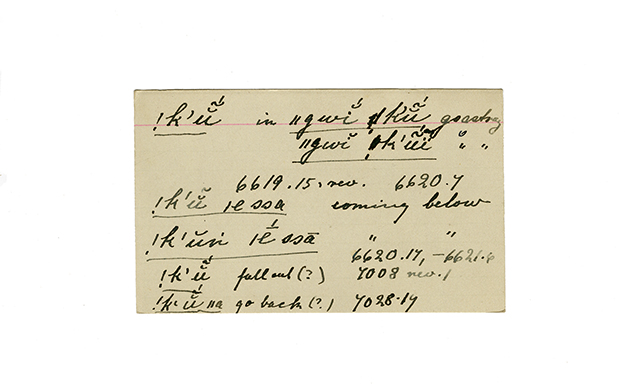 !k'ŭ̃ in ǁgwĭ !k'ŭ̃ go astray
ǁgwĭ !k'ŭĭ " "
6619.15, rev. 6620.7
!k'ŭ ǀe ssa coming below
!k'ŭń ǀé ssā " "
6620.17, -6621.6
!k'ŭ̃ fall out (?) 7008 rev. 1
!k'ŭ̃ ǁa go back (?) 7028.19